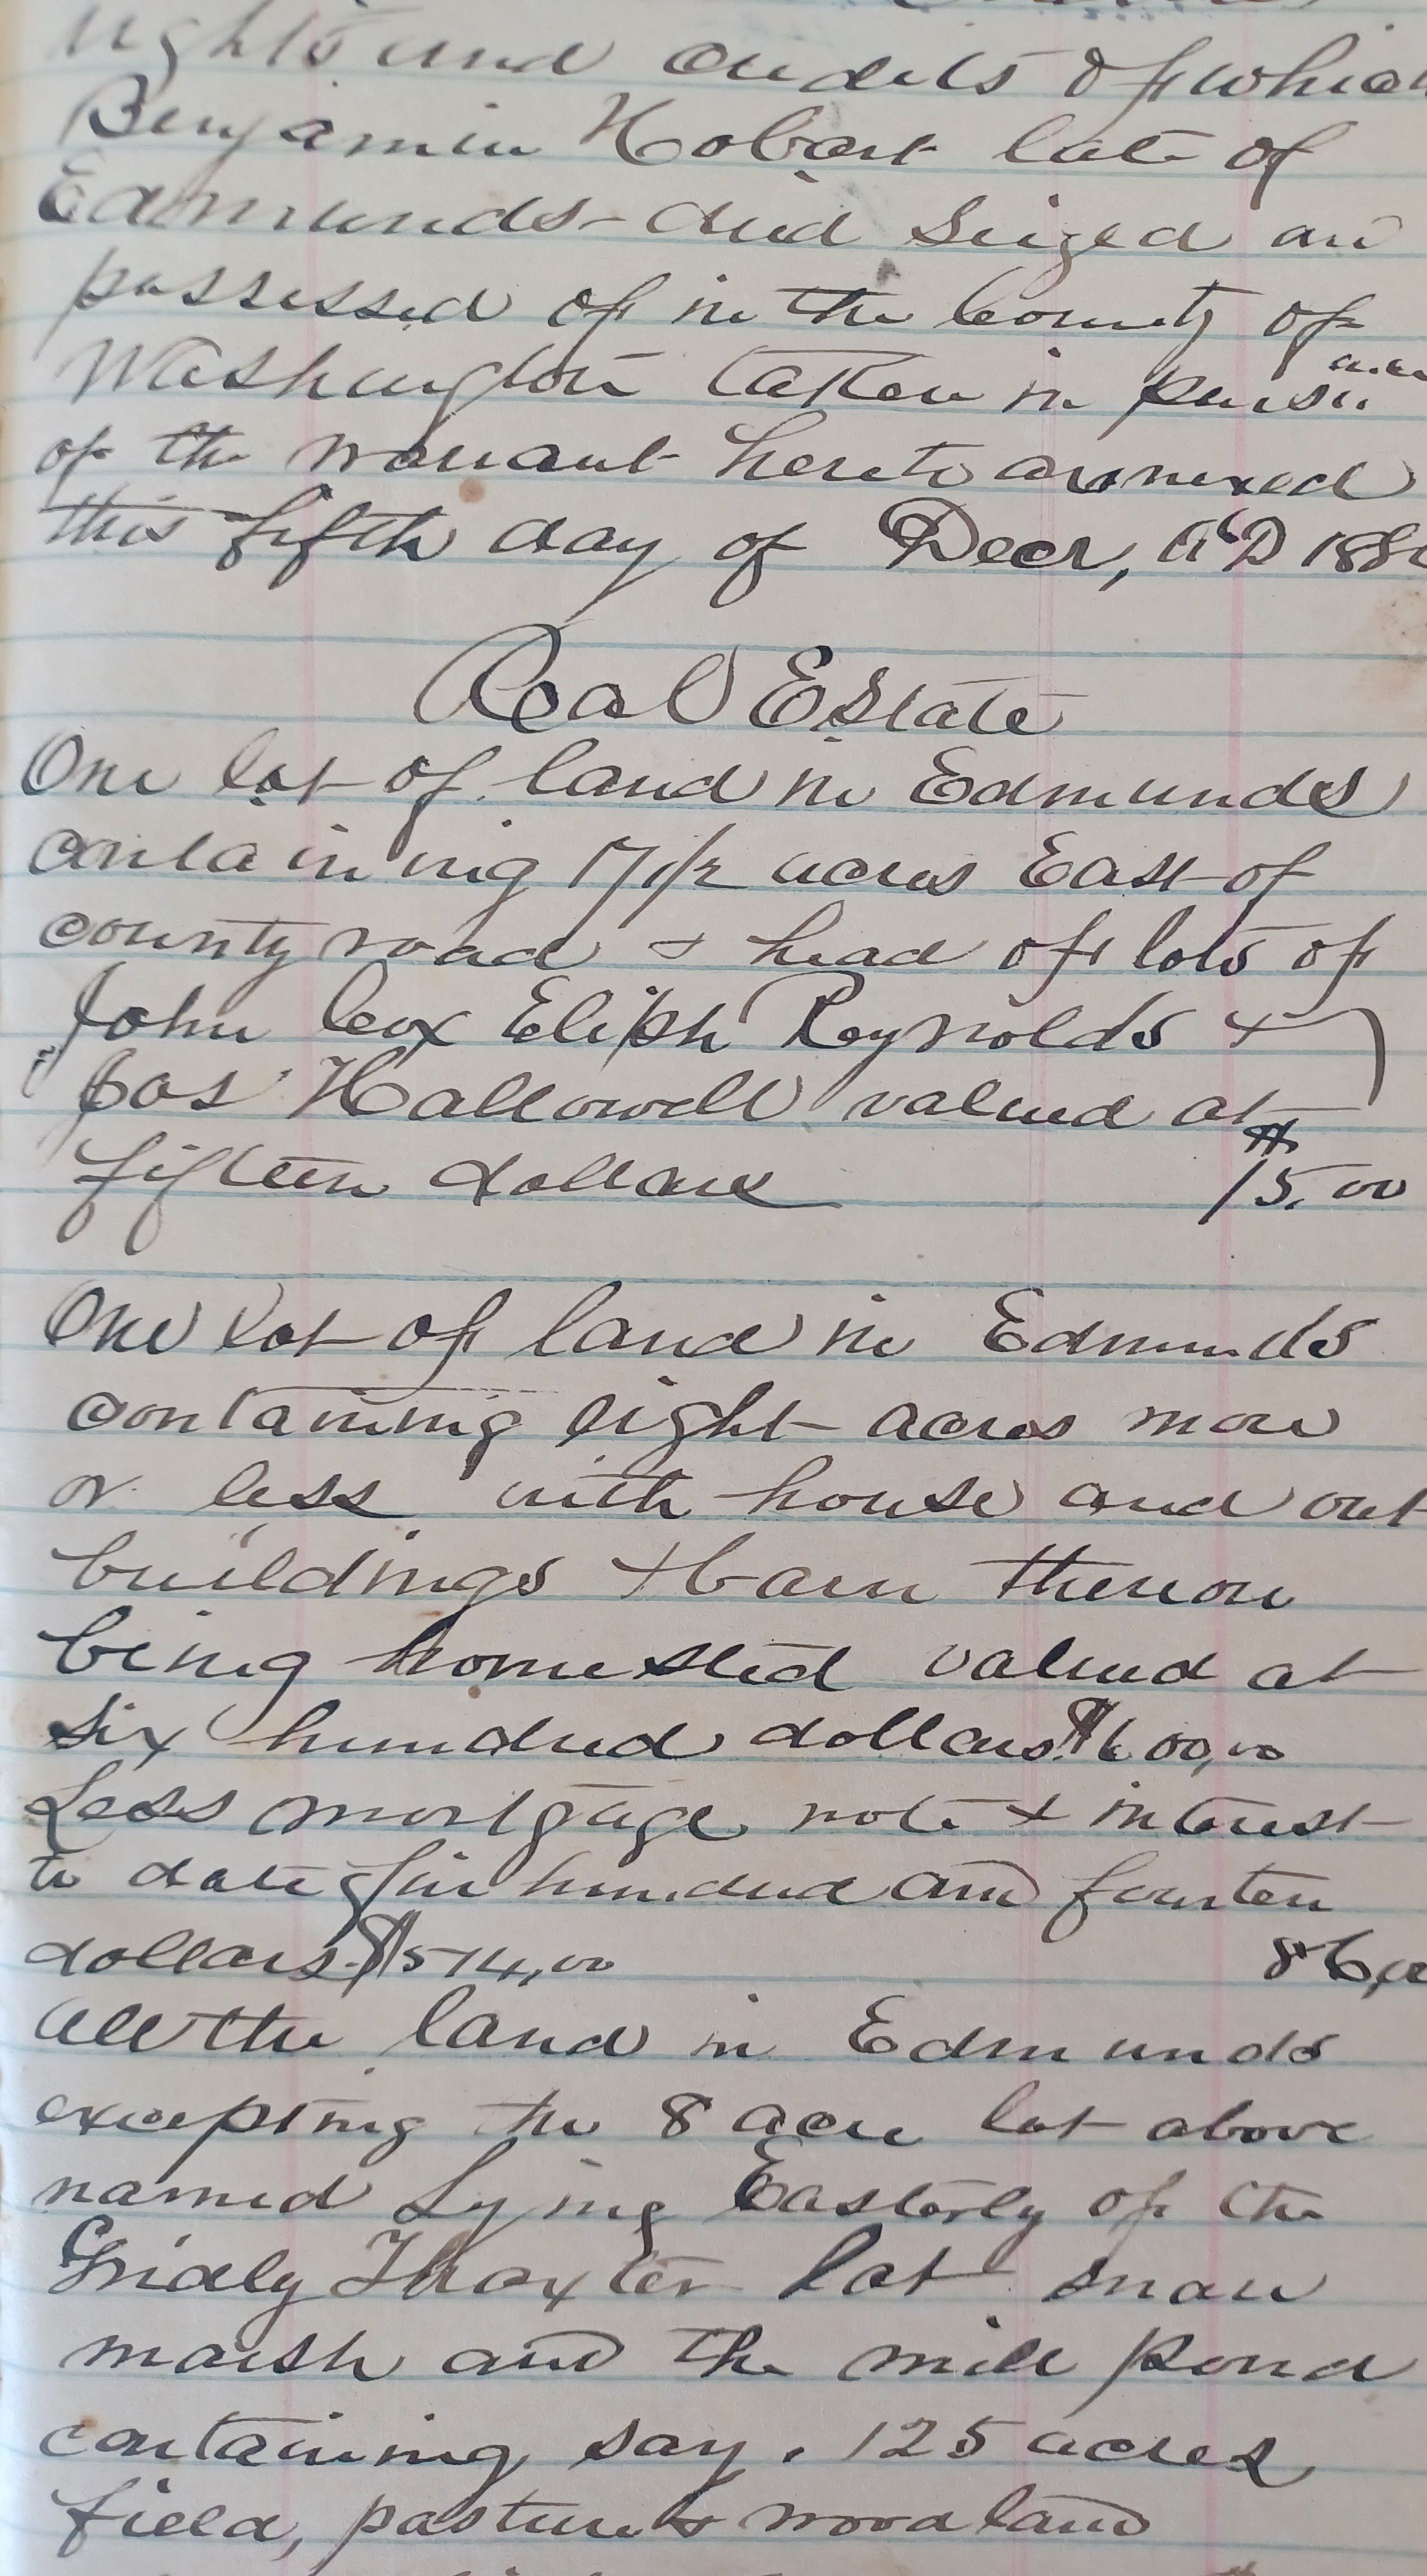 rights and credits of which
Benjamin Hobart late of
Edmunds died seized and
possessed of in the County of
Washington taken in pursuance
of the warrant hereto annexed
this fifth day of Decr, A D 188
Real Estate
One lot of land in Edmunds
containing 17 1/2 acres East of
county road & head of lots of
John Cox Eliph Reynolds &
Jas Hallowell valued at
fifteen dollars $15.00
One lot of land in Edmunds
containing eight acres more
or less with house and out
buildings & barn thereon
being homested valued at
six hundred dollars $600,00
Less mortgage note & interest
to date five hundred and fourten
dollars $514,00 86,00
All the land in Edmunds
excepting the 8 acre lot above
named Lying Easterly of the
Gridly Thaxter lot
marsh and the mill pond
containing say, 125 acres
field, pasture & woodland